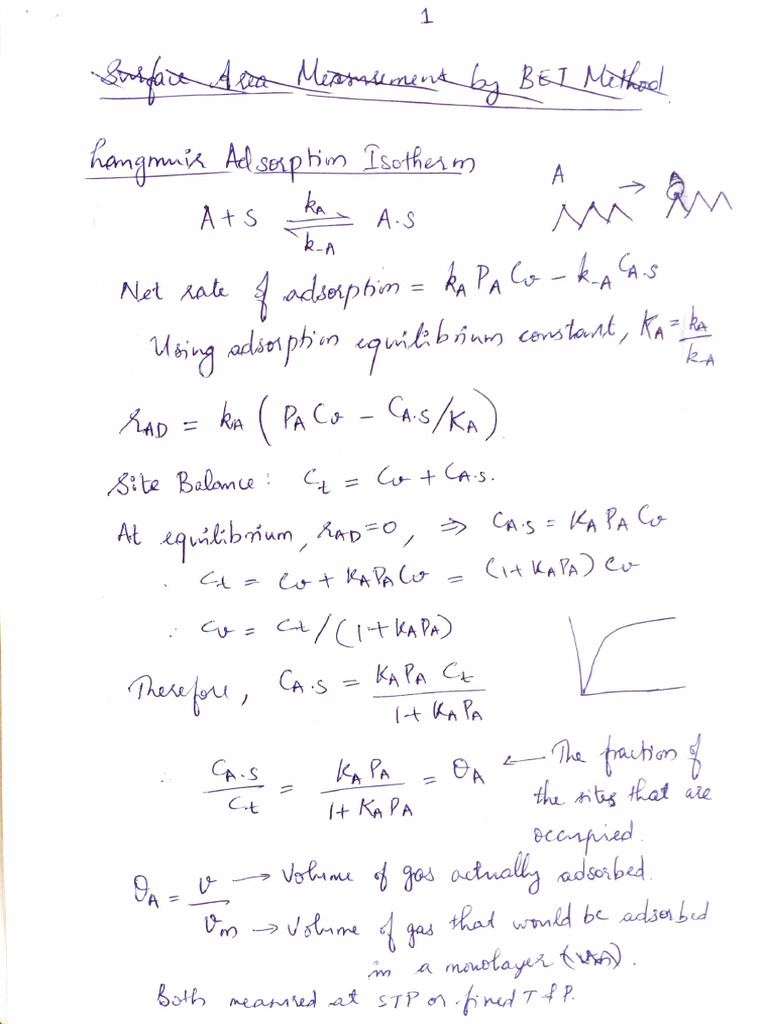 1
Surface Area Measurement by BET Method
Langmuir Adsorption Isotherm
A + S ⇌ A·S
kA
k-A
A → A
Net rate of adsorption = kA PA Cv − k-A CA·S
Using adsorption equilibrium constant, KA = kA/k-A
rAD = kA (PA Cv − CA·S/KA)
Site Balance: Ct = Cv + CA·S.
At equilibrium, rAD = 0, ⇒ CA·S = KA PA Cv
∴ Ct = Cv + KA PA Cv = (1 + KA PA) Cv
∴ Cv = Ct/(1 + KA PA)
Therefore, CA·S = KA PA Ct / 1 + KA PA
∴ CA·S / Ct = KA PA / 1 + KA PA = θA ← The fraction of
the sites that are
occupied.
θA = v → Volume of gas actually adsorbed.
vm → Volume of gas that would be adsorbed
in a monolayer
Both measured at STP or fixed T & P.